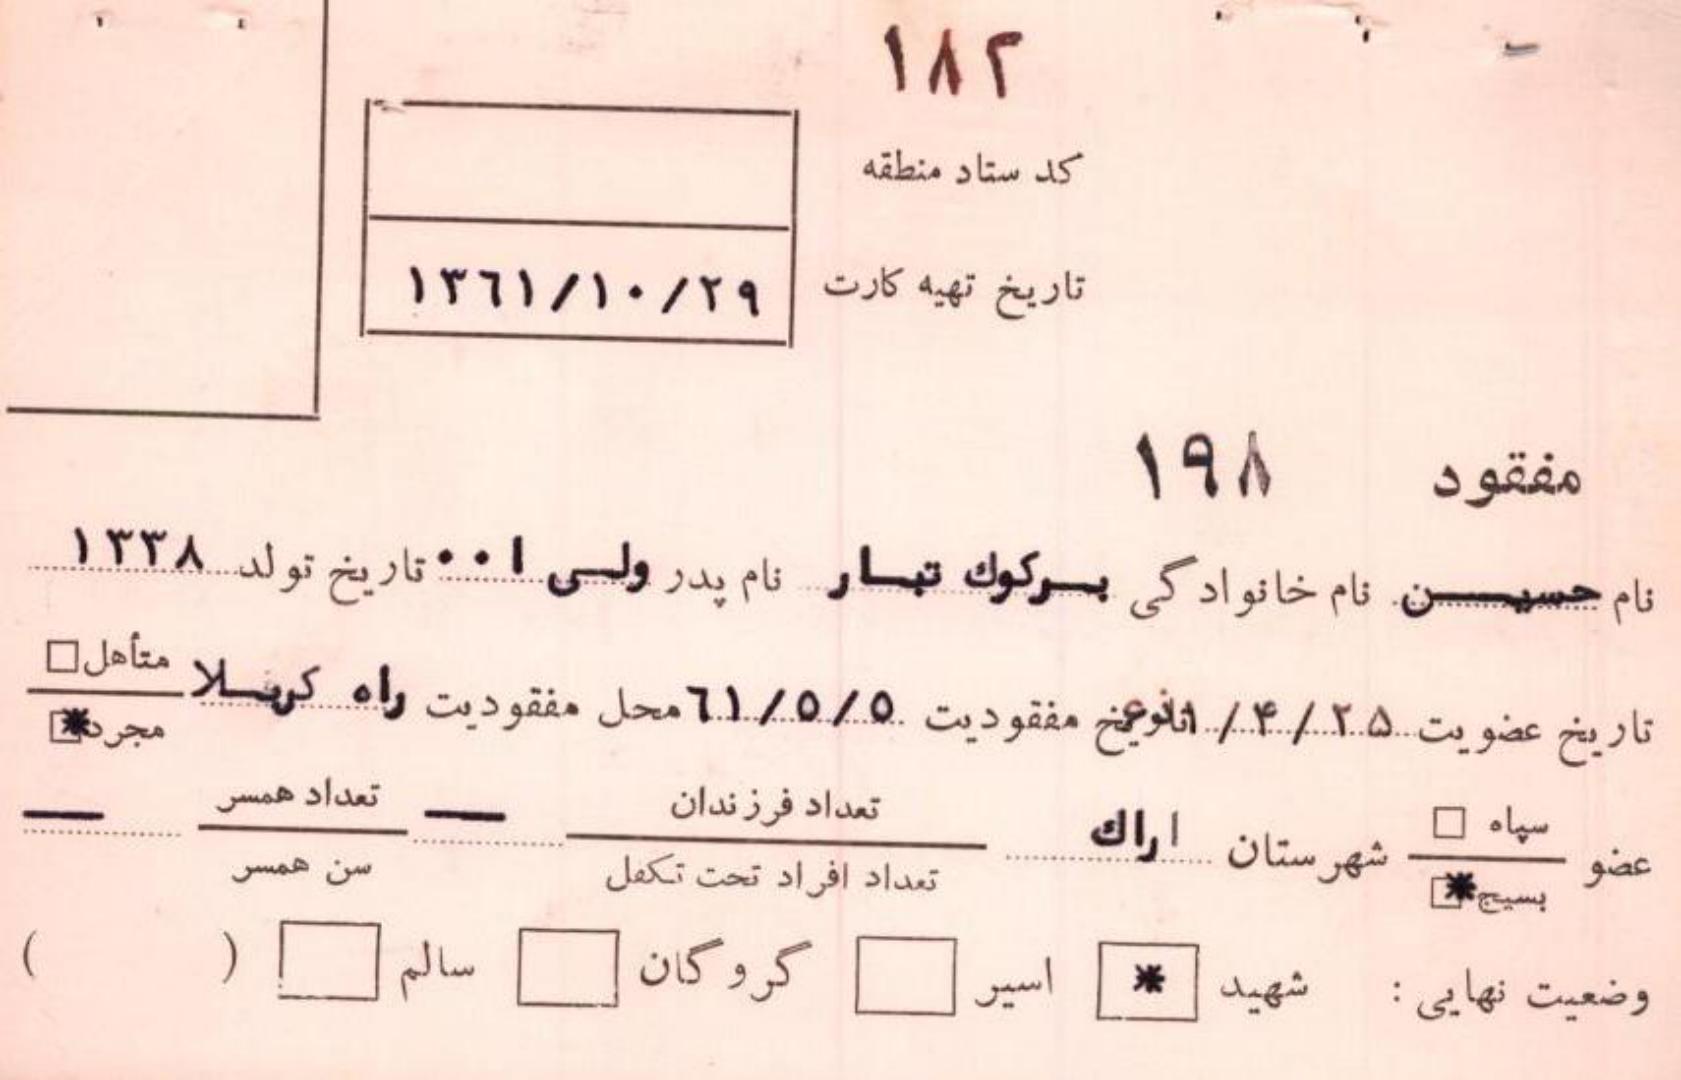 ۱۸۲
کد ستاد منطقه
تاریخ تهیه کارت ۱۳٦۱/۱۰/۲۹
مفقود ۱۹۸
نام حسین نام خانوادگی برکوك تبار نام پدر ولی ا۰۰ تاریخ تولد ۱۳۳۸
تاریخ عضویت ۲۵/۴/ تاریخ مفقودیت ٥/٥/٦۱ محل مفقودیت راه کربلا متأهل
مجرد
عضو سپاه شهرستان اراك تعداد فرزندان — تعداد همسر —
بسیج تعداد افراد تحت تکفل سن همسر
وضعیت نهایی : شهید * اسیر گروگان سالم ( )